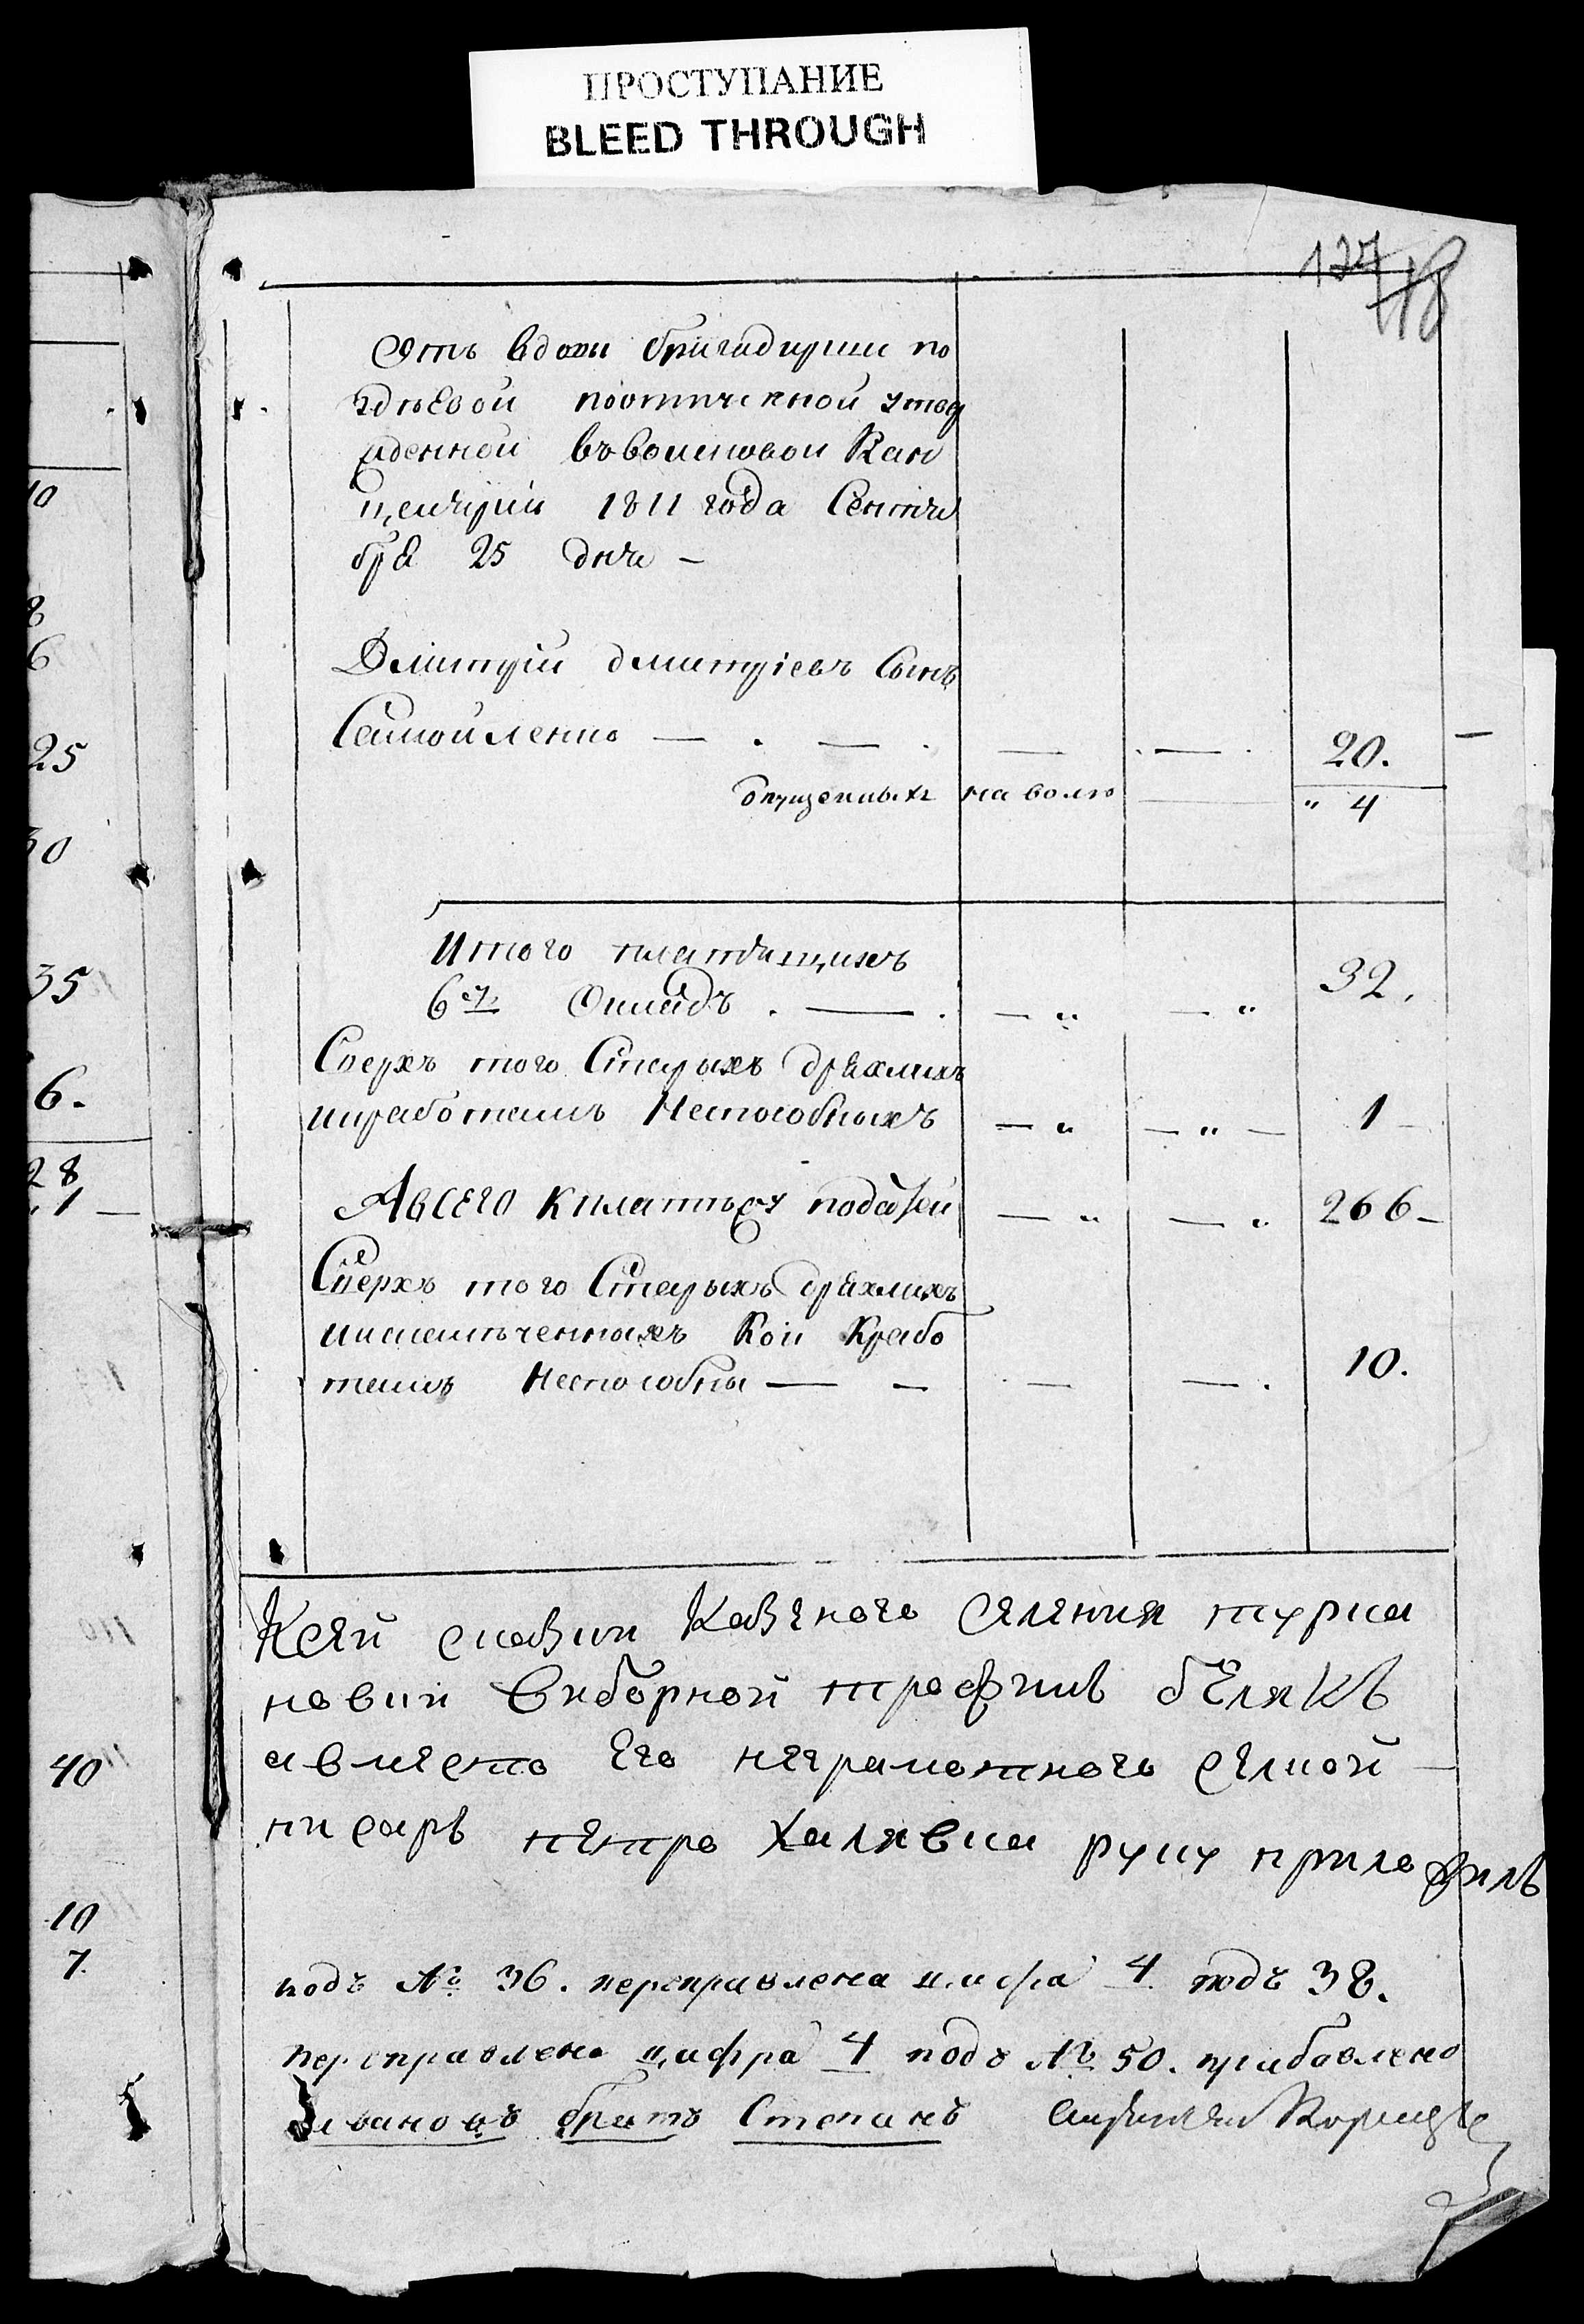 ПРОСТУПАНИЕ
BLEED THROUGH
127 118
Отъ вдовы бригадирши по
уто
денной въ волостной Кан
целяріи 1811 года Сентя
бря 25 дня —
Дмитрій дмитріевъ Сынъ
Самойленко — . — . — . — . 20. —
отпущенныхъ на волю — " 4
Итого платящихъ
6ть Окладъ . — . — " — " 32.
Сверхъ того Старыхъ дряхлыхъ
икработамъ Неспособныхъ — " — " — 1 —
Авсего кплатежу податей — " — " 266 —
Сверхъ того Старыхъ дряхлыхъ
иискалѣченныхъ Кои Крабо
тамъ Неспособны — — — — . 10.
Ксей сказки Казеного селения турка
новки виборной трофимъ бѣлякъ
авместо его неграмотного селкой
писарь петро Халявка руку приложилъ
подъ № 36. переправлена цифра 4 подъ 38.
переправлена цифра 4 подъ № 50. прибавлено
Ивановъ братъ Степанъ
10
8
6
25
30
35
6.
28
1 —
40
10
7.